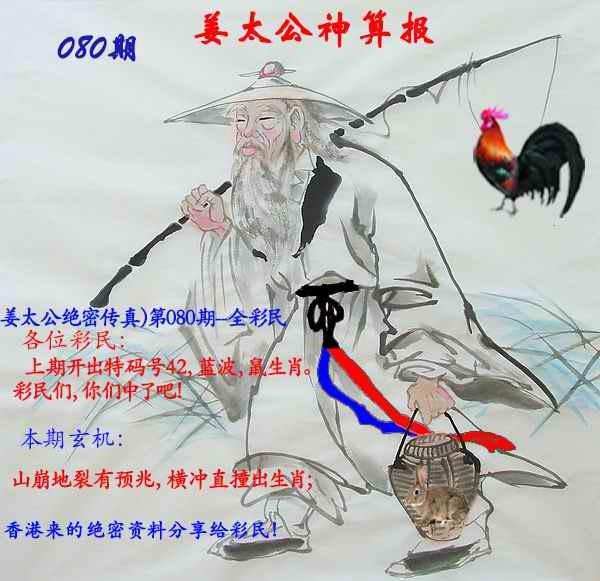 080期
姜太公神算报
姜太公绝密传真)第080期--全彩民
各位彩民:
上期开出特码号42,蓝波,鼠生肖。
彩民们,你们中了吧!
本期玄机:
山崩地裂有预兆,横冲直撞出生肖;
香港来的绝密资料分享给彩民!